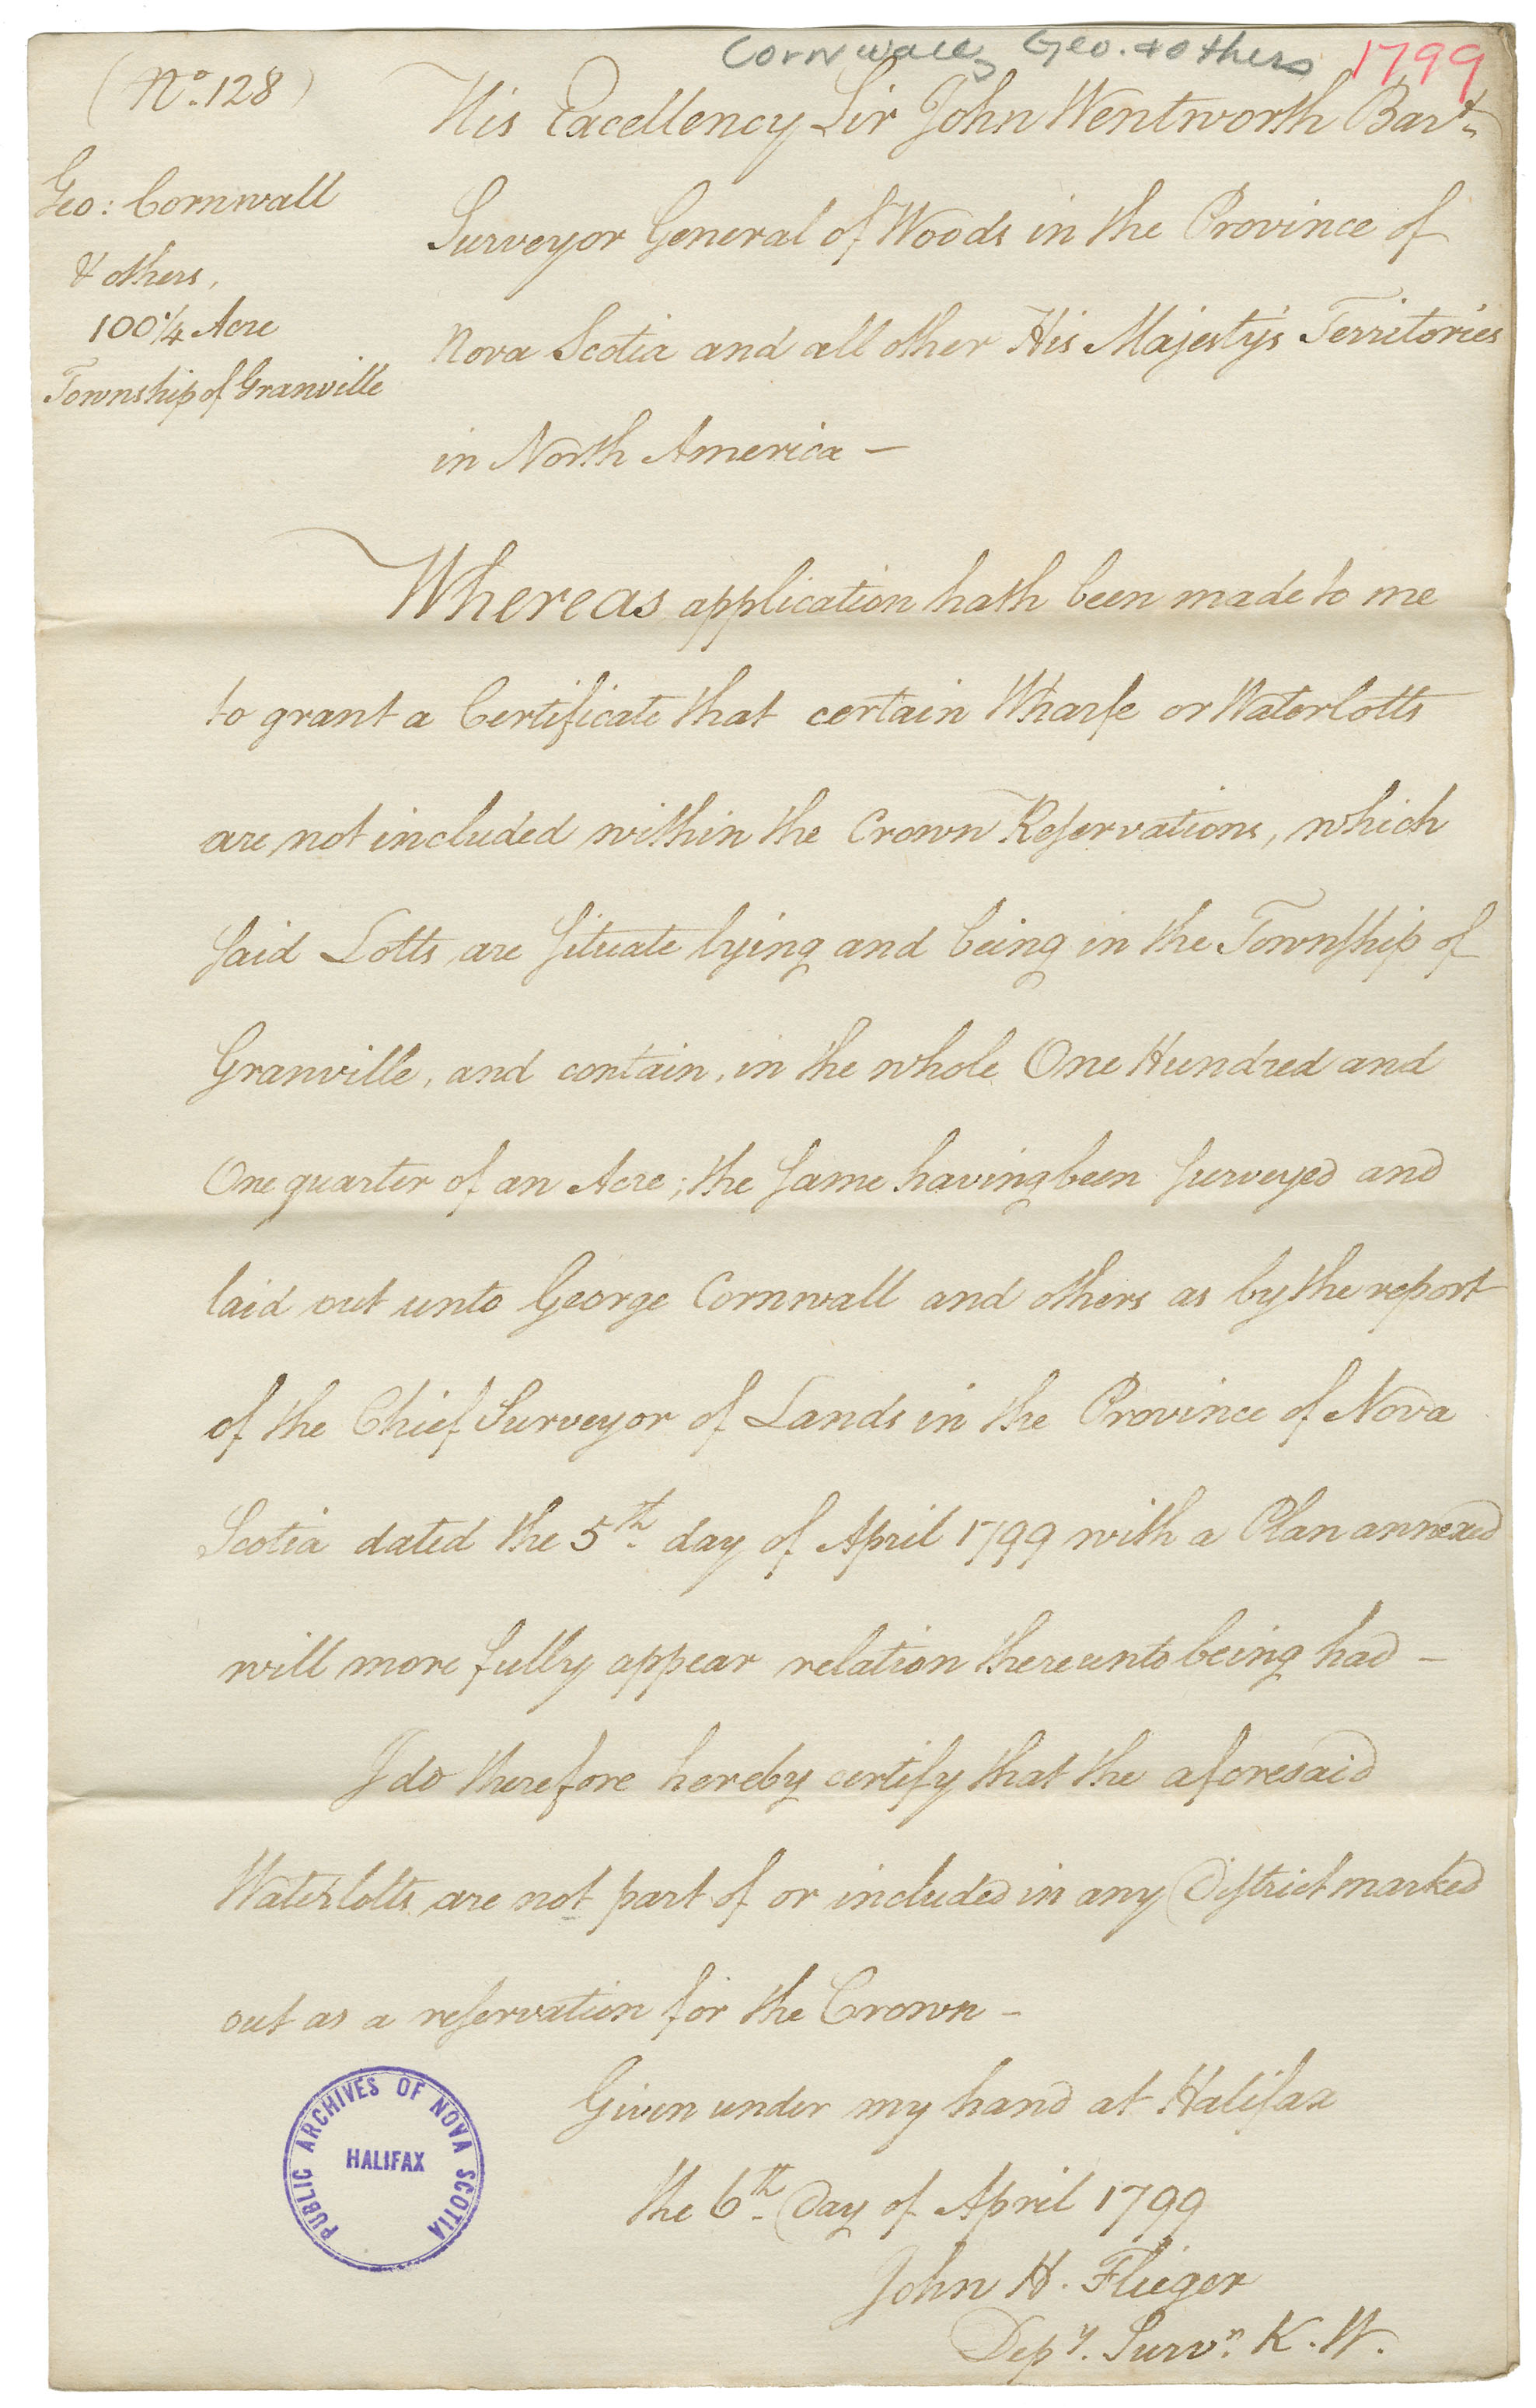 Cornwall, Geo. & others 1799
(No. 128)
Geo: Cornwall
& others,
100 1/4 Acre
Township of Granville
His Excellency Sir John Wentworth Bart.
Surveyor General of Woods in the Province of
Nova Scotia and all other His Majesty's Territories
in North America —
Whereas application hath been made to me
to grant a Certificate that certain Wharfe or Waterlotts
are not included within the Crown Reservations, which
said Lotts are situate lying and being in the Township of
Granville, and contain, in the whole One Hundred and
One quarter of an Acre; the same having been surveyed and
laid out unto George Cornwall and others as by the report
of the Chief Surveyor of Lands in the Province of Nova
Scotia dated the 5th. day of April 1799 with a Plan annexed
will more fully appear relation thereunto being had —
I do therefore hereby certify that the aforesaid
Waterlotts are not part of or included in any District marked
out as a reservation for the Crown —
Given under my hand at Halifax
the 6th. Day of April 1799
John H. Flieger
Depy. Survr. K. W.
PUBLIC ARCHIVES OF NOVA SCOTIA
HALIFAX